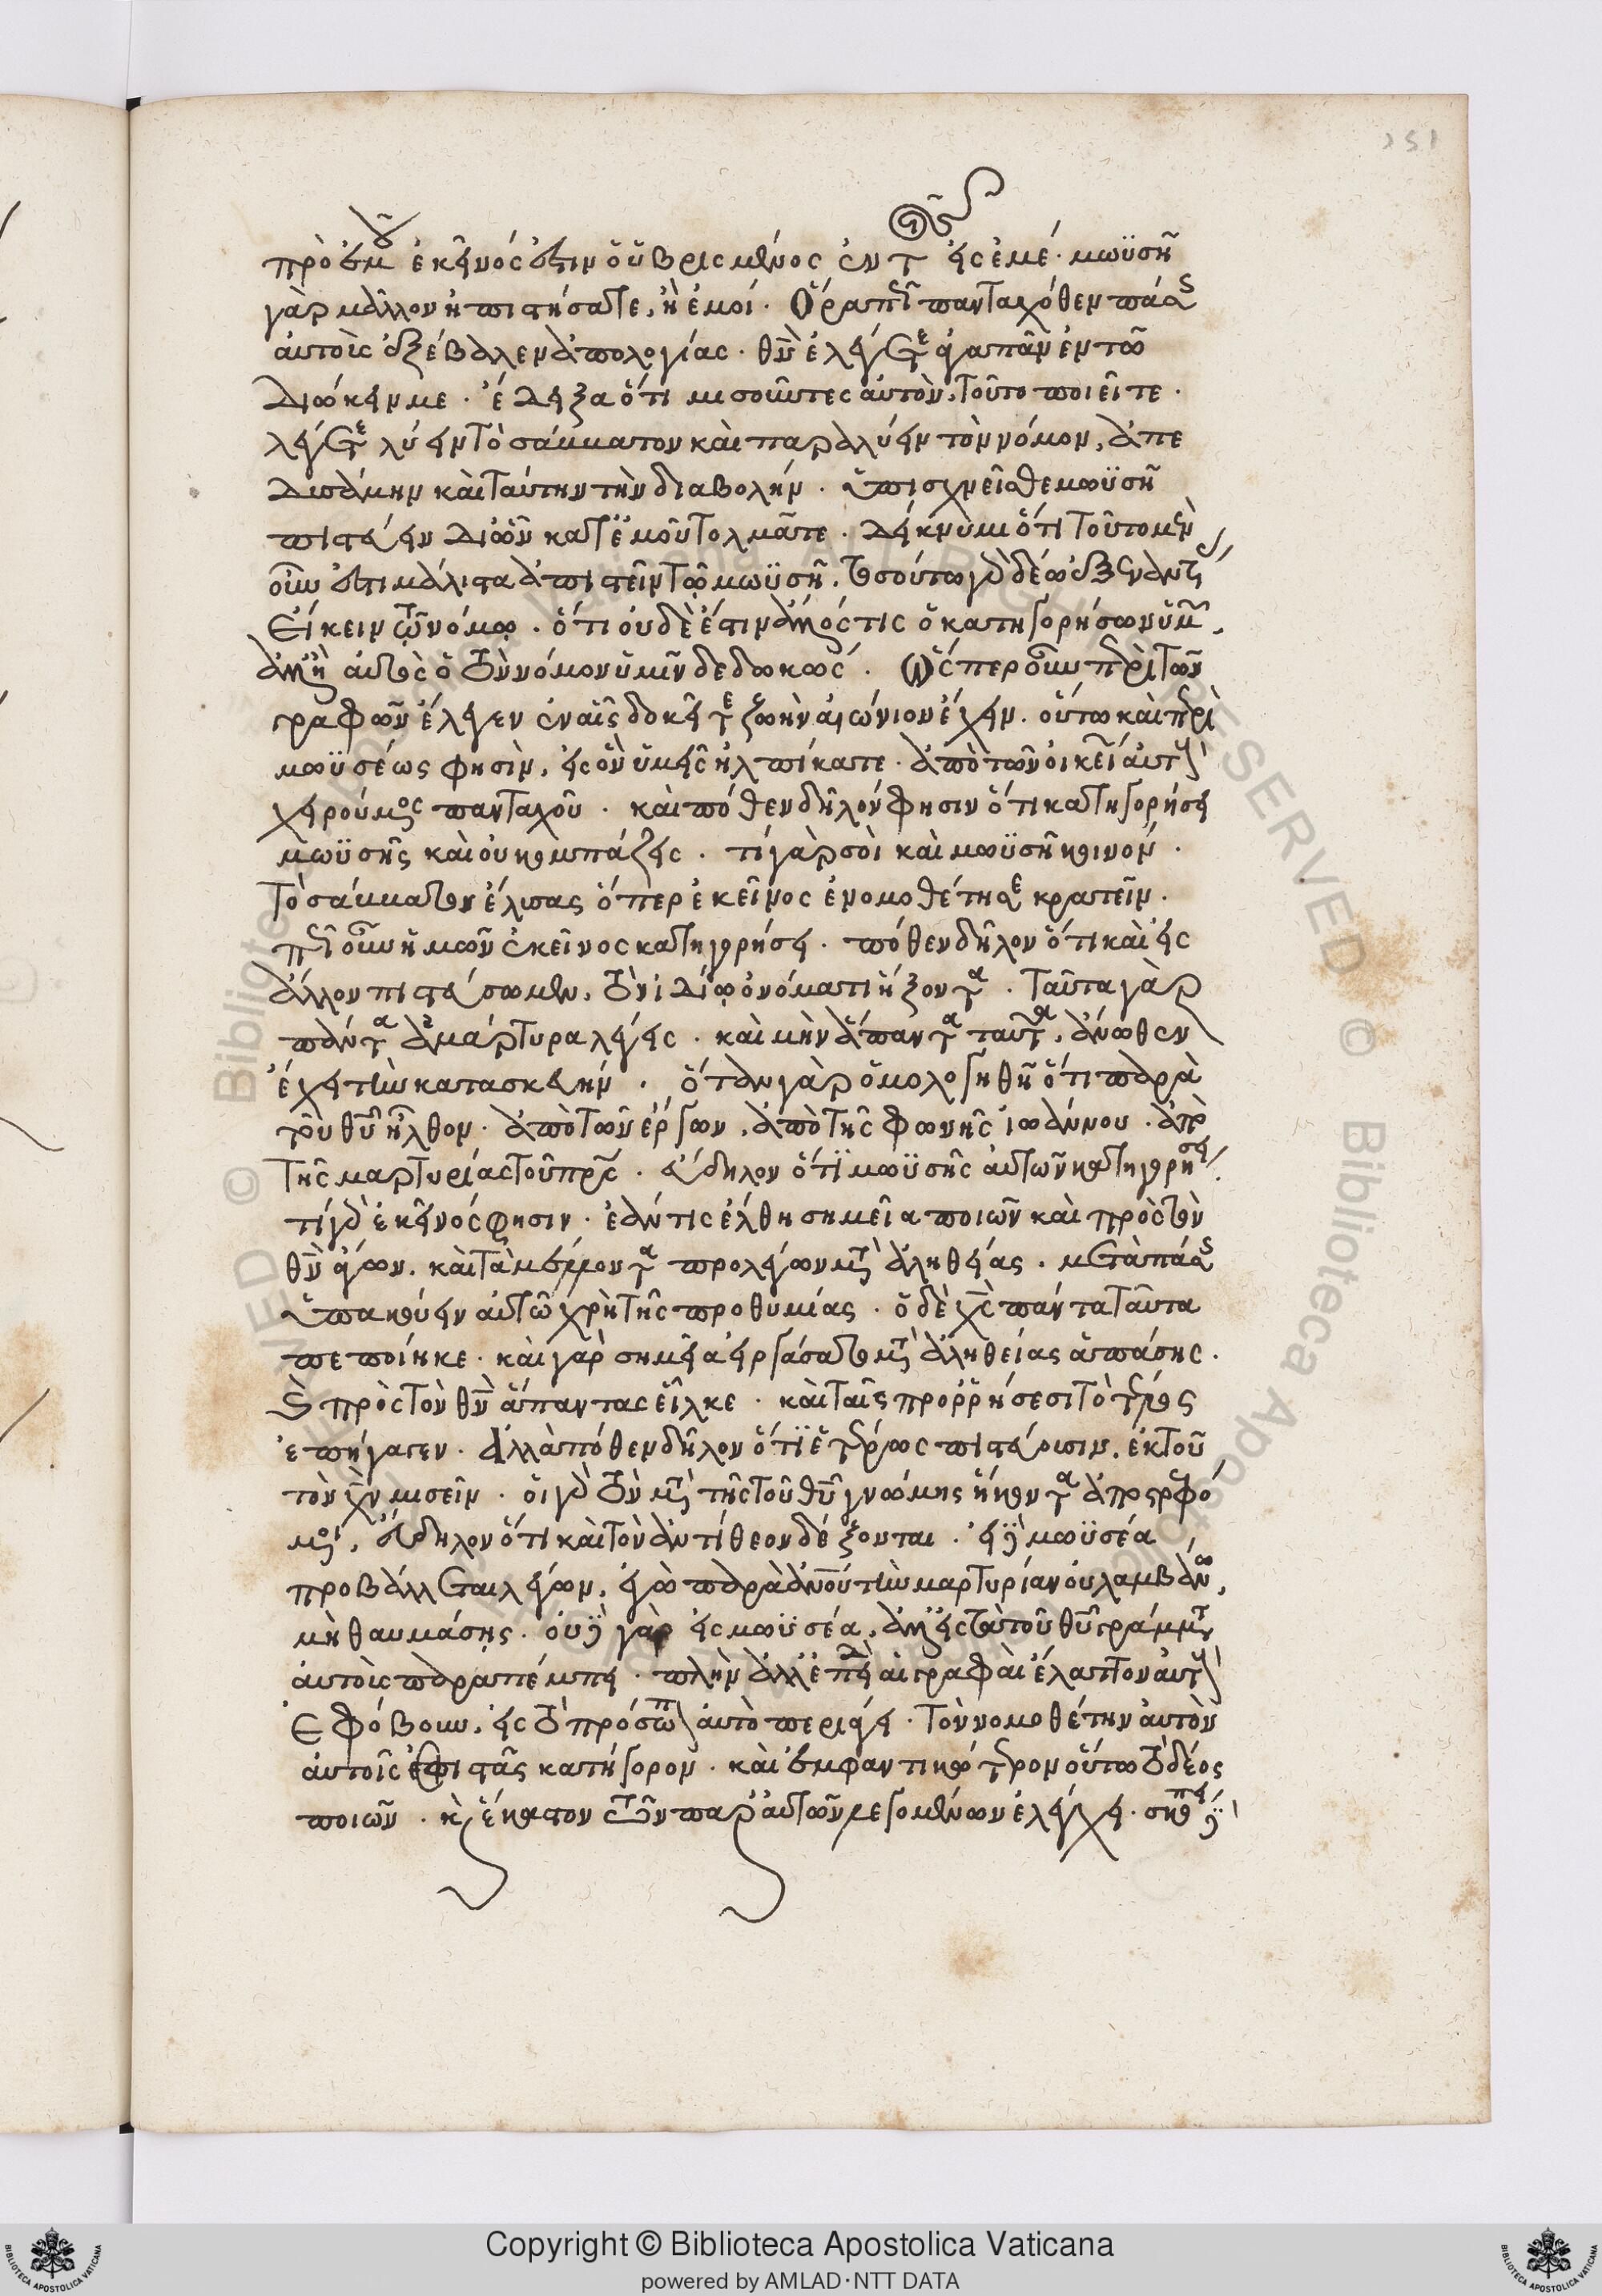 πρὸ ἐμοῦ ἐκεῖνός ἐστιν ὁ ὑβρισμένος ἐν τοῖς εἰς ἐμέ. μωϋσῆ
γὰρ μᾶλλον ἠπιστήσατε, ἢ ἐμοί. Ὅρα πῶς πανταχόθεν πάσης
αὐτοὺς ἐξέβαλεν ἀπολογίας. θν ἐλέγετε ἀγαπᾶν ἐν τῶ
διώκειν με. ἔδειξα ὅτι μισοῦντες αὐτὸν, τοῦτο ποιεῖτε.
λέγετε λύειν τὸ σάββατον καὶ παραλύειν τὸν νόμον, ἀπε
δυσάμην καὶ ταύτην τὴν διαβολήν. ὑπισχνεῖσθε μωϋσῆ
πιστεύειν δι' ὧν κατ' ἐμοῦ τολμᾶτε. δείκνυμι ὅτι τοῦτο μὲν
οὖν ἐστι μάλιστα ἀπιστεῖν τῷ μωϋσῆ. τοσούτω γὰρ δέω ἐξ ἐναντίας
εἴκειν τῶ νόμω. ὅτι οὐδὲ ἔστιν ἄλλός τις ὁ κατηγορήσων ὑμῶν,
ἀλλ' ἢ αὐτὸς ὁ τὸν νόμον ὑμῖν δεδωκώς. ὥσπερ οὖν περὶ τῶν
γραφῶν ἔλεγεν ἐν αἷς δοκεῖτε ζωὴν αἰώνιον ἔχειν. οὕτω καὶ περὶ
μωϋσέως φησὶν, εἰς ὃν ὑμεῖς ἠλπίκατε. ἀπὸ τῶν οἰκείων αὐτοὺς
χειρούμενος πανταχοῦ. καὶ πόθεν δῆλόν φησιν ὅτι κατηγορήσει
μωϋσῆς καὶ οὐ κομπάζεις. τί γὰρ σοὶ καὶ μωϋσῆ κοινόν.
τὸ σάββατον ἔλυσας ὅπερ ἐκεῖνος ἐνομοθέτησε κρατεῖν.
πῶς οὖν ἡμῶν ἐκεῖνος κατηγορήσει. πόθεν δῆλον ὅτι καὶ εἰς
ἄλλον πιστεύσωμεν, τὸν ἰδίῳ ὀνόματι ἥξοντα. ταῦτα γὰρ
πάντα ἀμάρτυρα λέγεις. καὶ μὴν ἅπαντα ταῦτα, ἄνωθεν
ἔχει τὴν κατασκευήν. ὅταν γὰρ ὁμολογηθῇ ὅτι παρὰ
τοῦ θυ ἦλθον. ἀπὸ τῶν ἔργων, ἀπὸ τῆς φωνῆς ἰωάννου. ἀπὸ
τῆς μαρτυρίας τοῦ πρς. εὔδηλον ὅτι μωϋσῆς αὐτῶν κατηγορήσει.
τί γὰρ ἐκεῖνός φησιν. ἐάν τις ἔλθη σημεῖα ποιῶν καὶ πρὸς τὸν
θν ἄγων. καὶ τὰ μέλλοντα προλέγων μετὰ ἀληθείας. μετὰ πάσης
ὑπακούειν αὐτῶ χρὴ τῆς προθυμίας. ὁ δὲ χς πάντα ταῦτα
πεποίηκε. καὶ γὰρ σημεῖα εἰργάσατο μετὰ ἀληθείας ἁπάσης.
καὶ πρὸς τὸν θν ἅπαντας εἷλκε. καὶ ταῖς προρρήσεσι τὸ τέλος
ἐπήγαγεν. Ἀλλὰ πόθεν δῆλον ὅτι ἑτέρως πιστεύουσιν, ἐκ τοῦ
τὸν χν μισεῖν. οἱ γὰρ τὸν μετὰ τῆς τοῦ θυ γνώμης ἥκοντα ἀποστρεφό
μενοι, εὔδηλον ὅτι καὶ τὸν ἀντίθεον δέξονται. εἰ δὲ μωϋσέα
προβάλλεται λέγων, ἐγὼ παρὰ ἀνου τὴν μαρτυρίαν οὐ λαμβάνω,
μὴ θαυμάσῃς. οὐ γὰρ εἰς μωϋσέα, ἀλλ' εἰς τὰ τοῦ θυ γράμματα
αὐτοὺς παραπέμπει. πλὴν ἀλλ' ἐπειδὴ αἱ γραφαὶ ἔλαττον αὐτοὺς
ἐφόβουν, εἰς τὸ πρόσωπον αὐτὸ περιάγει. τὸν νομοθέτην αὐτὸν
αὐτοῖς ἐφιστᾶς κατήγορον. καὶ ἐμφαντικώτερον οὕτω τὸ δέος
ποιῶν. καὶ ἕκαστον τῶν παρ' αὐτῶν λεγομένων ἐλέγχει. σκόπει